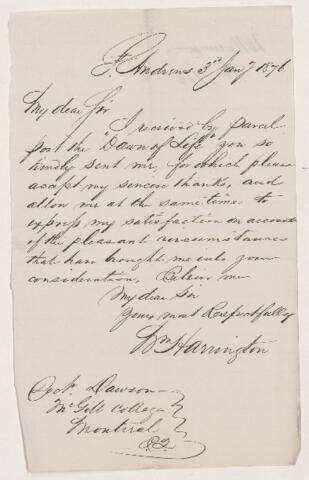 St. Andrews 3rd Jany 1876
My dear Sir
I received by parcel
post the "Dawn of Life" you so
kindly sent me, for which please
accept my sincere thanks, and
allow me at the same time to
express my satisfaction on account
of the pleasant circumstances
that have brought me into your
consideration, Believe me
My dear Sir
Yours most Respectfully
Wm Harrington
Dawson
McGill College
Montreal
P.Q.